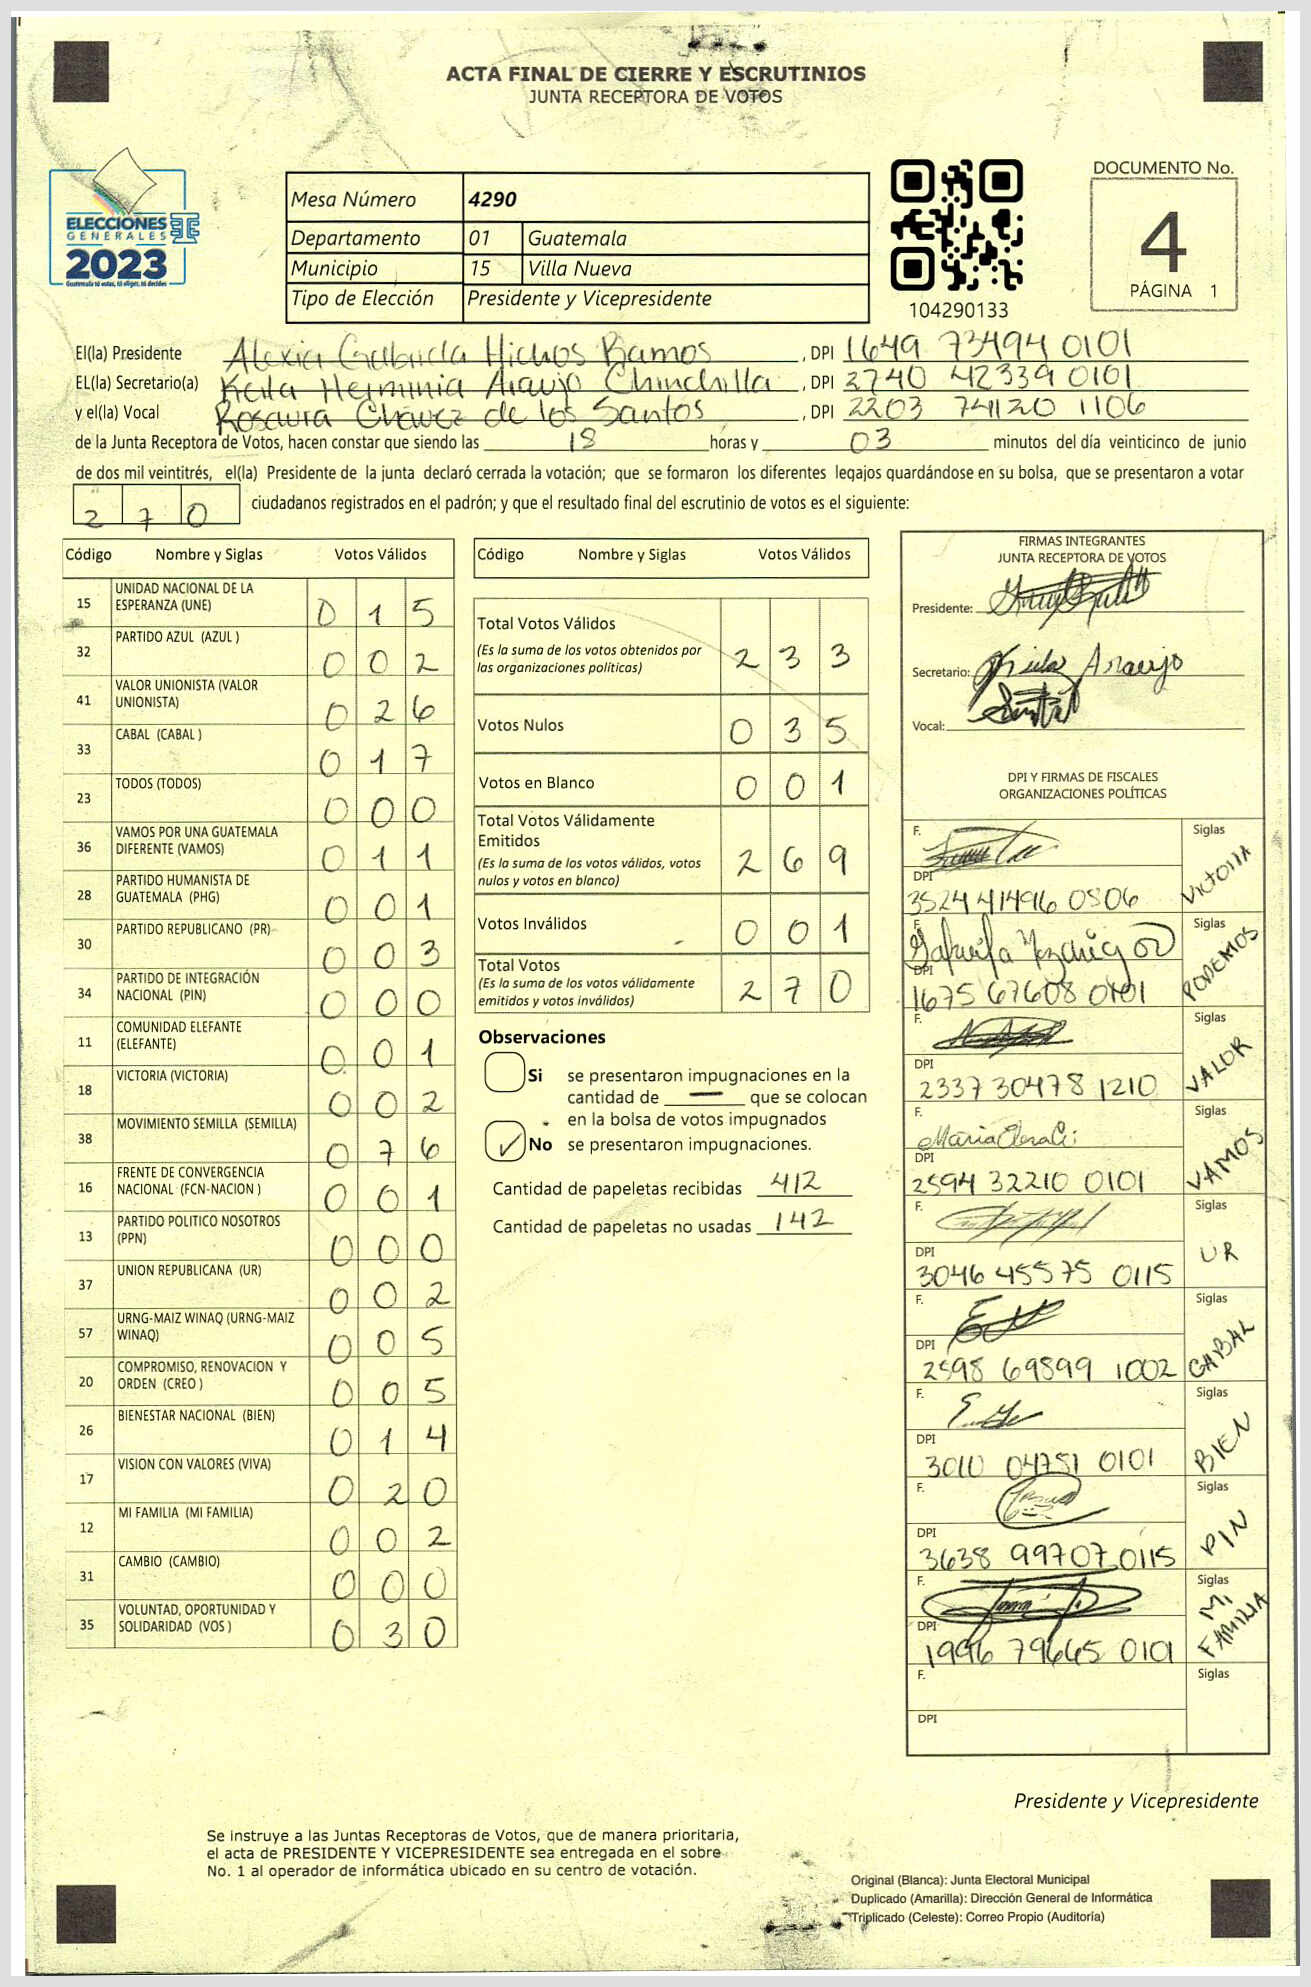 ACTA FINAL DE CIERRE Y ESCRUTINIOS
JUNTA RECEPTORA DE VOTOS
ELECCIONES
GENERALES
2023
Mesa Número 4290
Departamento 01 Guatemala
Municipio 15 Villa Nueva
Tipo de Elección Presidente y Vicepresidente
104290133
DOCUMENTO No.
4
PÁGINA 1
El(la) Presidente Alexia Gabriela Hichos Ramos , DPI 1649 73494 0101
EL(la) Secretario(a) Keila Herminia Araujo Chinchilla , DPI 2740 42339 0101
y el(la) Vocal Rosaura Chávez de los Santos , DPI 2203 74120 1106
de la Junta Receptora de Votos, hacen constar que siendo las 18 horas y 03 minutos del día veinticinco de junio
de dos mil veintitrés, el(la) Presidente de la junta declaró cerrada la votación; que se formaron los diferentes legajos quardándose en su bolsa, que se presentaron a votar
270 ciudadanos registrados en el padrón; y que el resultado final del escrutinio de votos es el siguiente:
Código Nombre y Siglas Votos Válidos
15 UNIDAD NACIONAL DE LA
ESPERANZA (UNE) 015
32 PARTIDO AZUL (AZUL ) 002
41 VALOR UNIONISTA (VALOR
UNIONISTA) 026
33 CABAL (CABAL ) 017
23 TODOS (TODOS) 000
36 VAMOS POR UNA GUATEMALA
DIFERENTE (VAMOS) 011
28 PARTIDO HUMANISTA DE
GUATEMALA (PHG) 001
30 PARTIDO REPUBLICANO (PR) 003
34 PARTIDO DE INTEGRACIÓN
NACIONAL (PIN) 000
11 COMUNIDAD ELEFANTE
(ELEFANTE) 001
18 VICTORIA (VICTORIA) 002
38 MOVIMIENTO SEMILLA (SEMILLA) 076
16 FRENTE DE CONVERGENCIA
NACIONAL (FCN-NACION ) 001
13 PARTIDO POLITICO NOSOTROS
(PPN) 000
37 UNION REPUBLICANA (UR) 002
57 URNG-MAIZ WINAQ (URNG-MAIZ
WINAQ) 005
20 COMPROMISO, RENOVACION Y
ORDEN (CREO ) 005
26 BIENESTAR NACIONAL (BIEN) 014
17 VISION CON VALORES (VIVA) 020
12 MI FAMILIA (MI FAMILIA) 002
31 CAMBIO (CAMBIO) 000
35 VOLUNTAD, OPORTUNIDAD Y
SOLIDARIDAD (VOS ) 030
Código Nombre y Siglas Votos Válidos
Total Votos Válidos
(Es la suma de los votos obtenidos por
las organizaciones políticas) 233
Votos Nulos 035
Votos en Blanco 001
Total Votos Válidamente
Emitidos
(Es la suma de los votos válidos, votos
nulos y votos en blanco) 269
Votos Inválidos 001
Total Votos
(Es la suma de los votos válidamente
emitidos y votos inválidos) 270
Observaciones
Si se presentaron impugnaciones en la
cantidad de — que se colocan
en la bolsa de votos impugnados
✓ No se presentaron impugnaciones.
Cantidad de papeletas recibidas 412
Cantidad de papeletas no usadas 142
FIRMAS INTEGRANTES
JUNTA RECEPTORA DE VOTOS
Presidente:
Secretario: Keila Araujo
Vocal:
DPI Y FIRMAS DE FISCALES
ORGANIZACIONES POLÍTICAS
F. Siglas VICTORIA
DPI
3524 41496 0506
F. Siglas PODEMOS
DPI
1675 67608 0101
F. Siglas VALOR
DPI
2337 30478 1210
F. Siglas VAMOS
DPI
2594 32210 0101
F. Siglas UR
DPI
3046 45575 0115
F. Siglas CABAL
DPI
2598 69899 1002
F. Siglas BIEN
DPI
3010 04751 0101
F. Siglas PIN
DPI
3638 99707 0115
F. Siglas MI FAMILIA
DPI
1996 79665 0101
F. Siglas
DPI
Presidente y Vicepresidente
Se instruye a las Juntas Receptoras de Votos, que de manera prioritaria,
el acta de PRESIDENTE Y VICEPRESIDENTE sea entregada en el sobre
No. 1 al operador de informática ubicado en su centro de votación.
Original (Blanca): Junta Electoral Municipal
Duplicado (Amarilla): Dirección General de Informática
Triplicado (Celeste): Correo Propio (Auditoría)